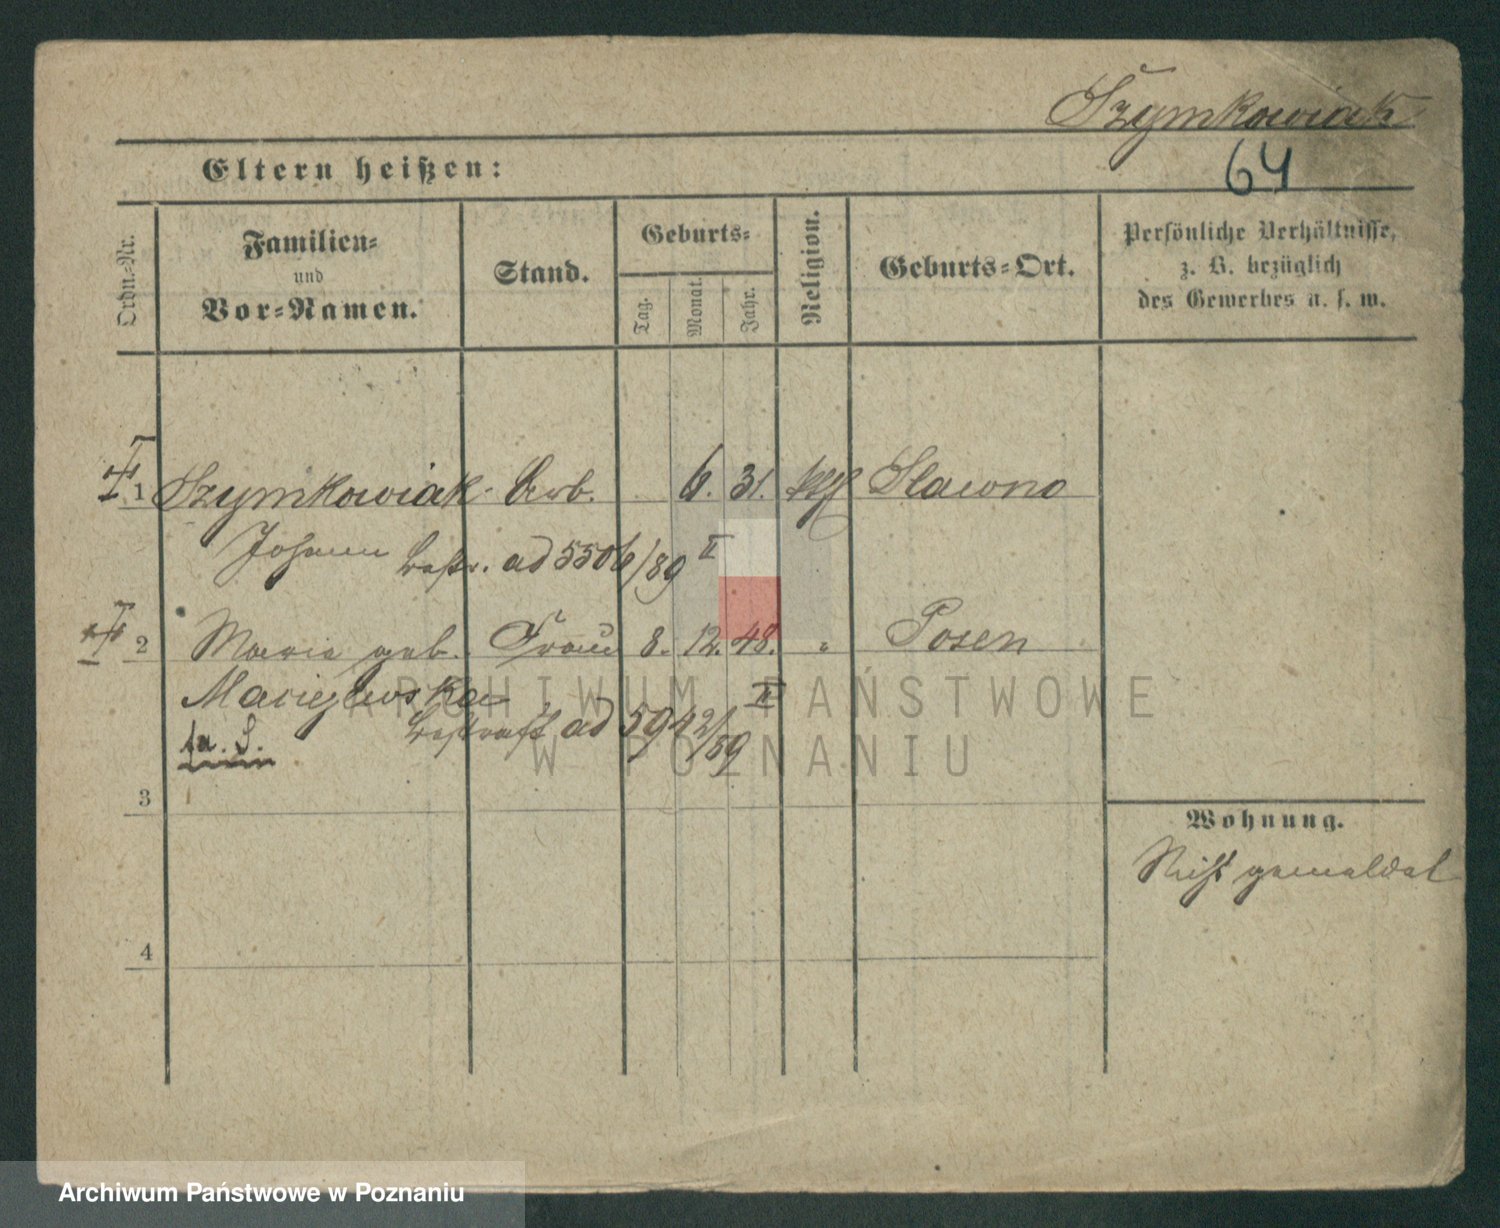 Szymkowiak
64
Eltern heißen:
Ordn.-Nr.
Familien-
und
Vor-Namen.
Stand.
Geburts-
Tag.
Monat.
Jahr.
Religion.
Geburts-Ort.
Persönliche Verhältnisse,
z. B. bezüglich
des Gewerbes u. s. w.
1 Szymkowiak Arb. 6. 31. kth Slawno
Johann Bestr. ad 5506/89 II
2 Marie geb. Frau 8. 12. 48. " Posen
Maciejewska
Bestraft ad 5942/89 II
3
Wohnung.
Nicht gemeldet
4
ARCHIWUM PAŃSTWOWE
W POZNANIU
Archiwum Państwowe w Poznaniu